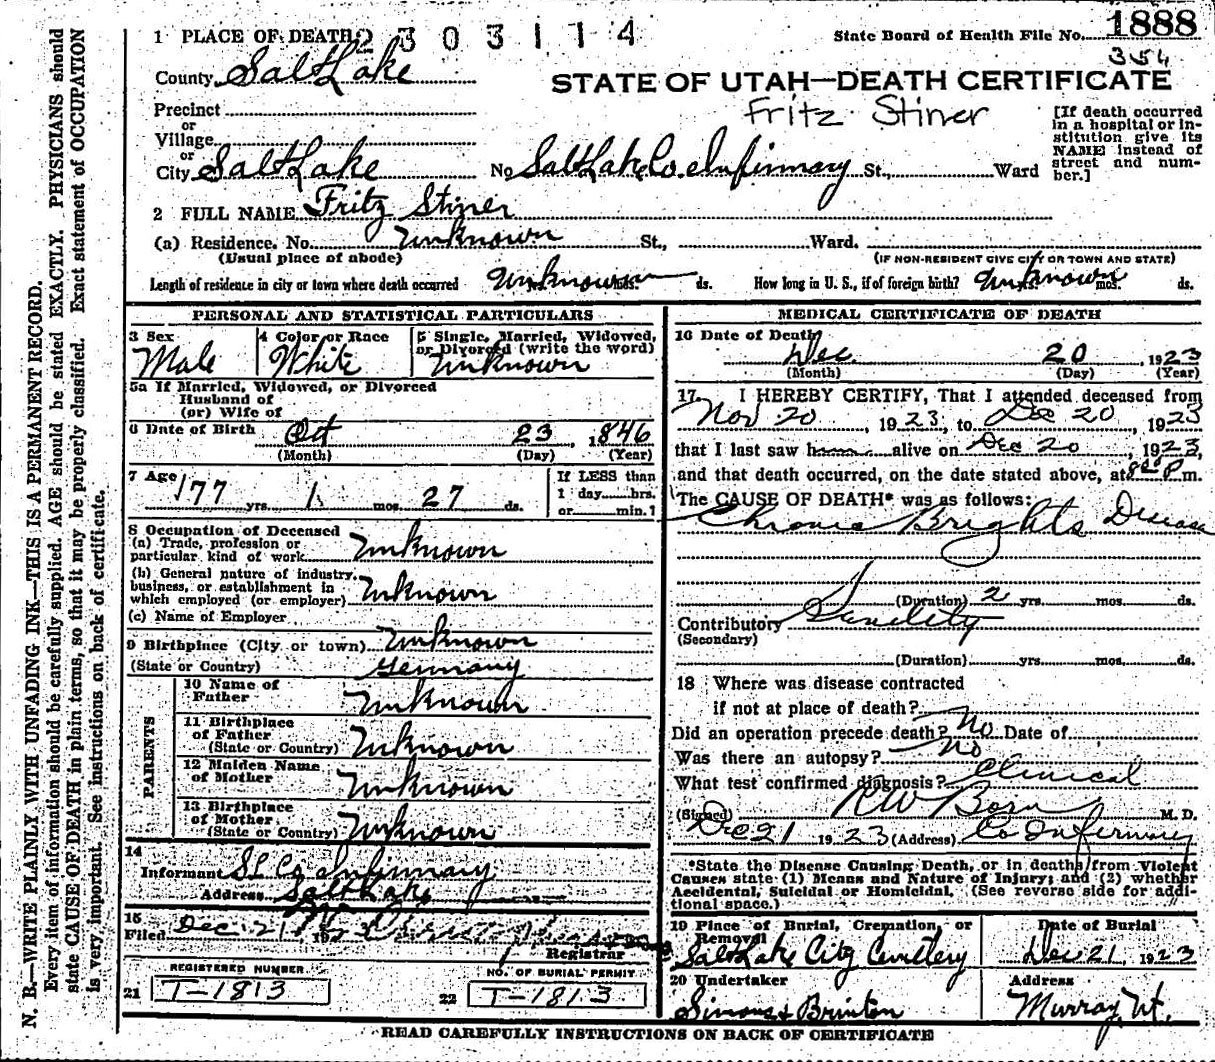 N. B.—WRITE PLAINLY WITH UNFADING INK—THIS IS A PERMANENT RECORD.
Every item of information should be carefully supplied. AGE should be stated EXACTLY. PHYSICIANS should
state CAUSE OF DEATH in plain terms, so that it may be properly classified. Exact statement of OCCUPATION
is very important. See instructions on back of certificate.
1 PLACE OF DEATH 2303114
State Board of Health File No. 1888
354
County Salt Lake
STATE OF UTAH—DEATH CERTIFICATE
Fritz Stiner
Precinct
or
Village
or
City Salt Lake No Salt Lake Co. Infirmary St., Ward
[If death occurred
in a hospital or in-
stitution give its
NAME instead of
street and num-
ber.]
2 FULL NAME Fritz Stiner
(a) Residence. No. Unknown St., Ward.
(Usual place of abode)
(IF NON-RESIDENT GIVE CITY OR TOWN AND STATE)
Length of residence in city or town where death occurred Unknown mos. ds. How long in U. S., if of foreign birth? Unknown yrs. mos. ds.
PERSONAL AND STATISTICAL PARTICULARS
3 Sex
Male
4 Color or Race
White
5 Single, Married, Widowed,
or Divorced (write the word)
Unknown
5a If Married, Widowed, or Divorced
Husband of
(or) Wife of
6 Date of Birth Oct 23, 1846
(Month) (Day) (Year)
7 Age 77 yrs. 1 mos. 27 ds.
If LESS than
1 day hrs.
or min.?
8 Occupation of Deceased
(a) Trade, profession or
particular kind of work Unknown
(b) General nature of industry,
business, or establishment in
which employed (or employer) Unknown
(c) Name of Employer
9 Birthplace (City or town) Unknown
(State or Country) Germany
PARENTS
10 Name of
Father Unknown
11 Birthplace
of Father
(State or Country) Unknown
12 Maiden Name
of Mother Unknown
13 Birthplace
of Mother
(State or Country) Unknown
14
Informant S L Co Infirmary
Address Salt Lake
15
Filed Dec. 21 192
Registrar
REGISTERED NUMBER
21 T-1813
NO. OF BURIAL PERMIT
22 T-1813
MEDICAL CERTIFICATE OF DEATH
16 Date of Death
Dec. 20 1923
(Month) (Day) (Year)
17 I HEREBY CERTIFY, That I attended deceased from
Nov 20, 1923, to Dec 20, 1923
that I last saw h alive on Dec 20, 1923,
and that death occurred, on the date stated above, at 8 P m.
The CAUSE OF DEATH* was as follows:
Chronic Brights Disease
(Duration) 2 yrs. mos. ds.
Contributory Senility
(Secondary)
(Duration) yrs. mos. ds.
18 Where was disease contracted
if not at place of death?
Did an operation precede death? No Date of
Was there an autopsy? No
What test confirmed diagnosis? Clinical
(Signed) M. D.
Dec 21 1923 (Address) Co Infirmary
*State the Disease Causing Death, or in deaths from Violent
Causes state (1) Means and Nature of Injury; and (2) whether
Accidental, Suicidal or Homicidal. (See reverse side for addi-
tional space.)
19 Place of Burial, Cremation, or
Removal
Salt Lake City Cemetery
Date of Burial
Dec 21, 1923
20 Undertaker
Simons & Brinton
Address
Murray Ut.
READ CAREFULLY INSTRUCTIONS ON BACK OF CERTIFICATE